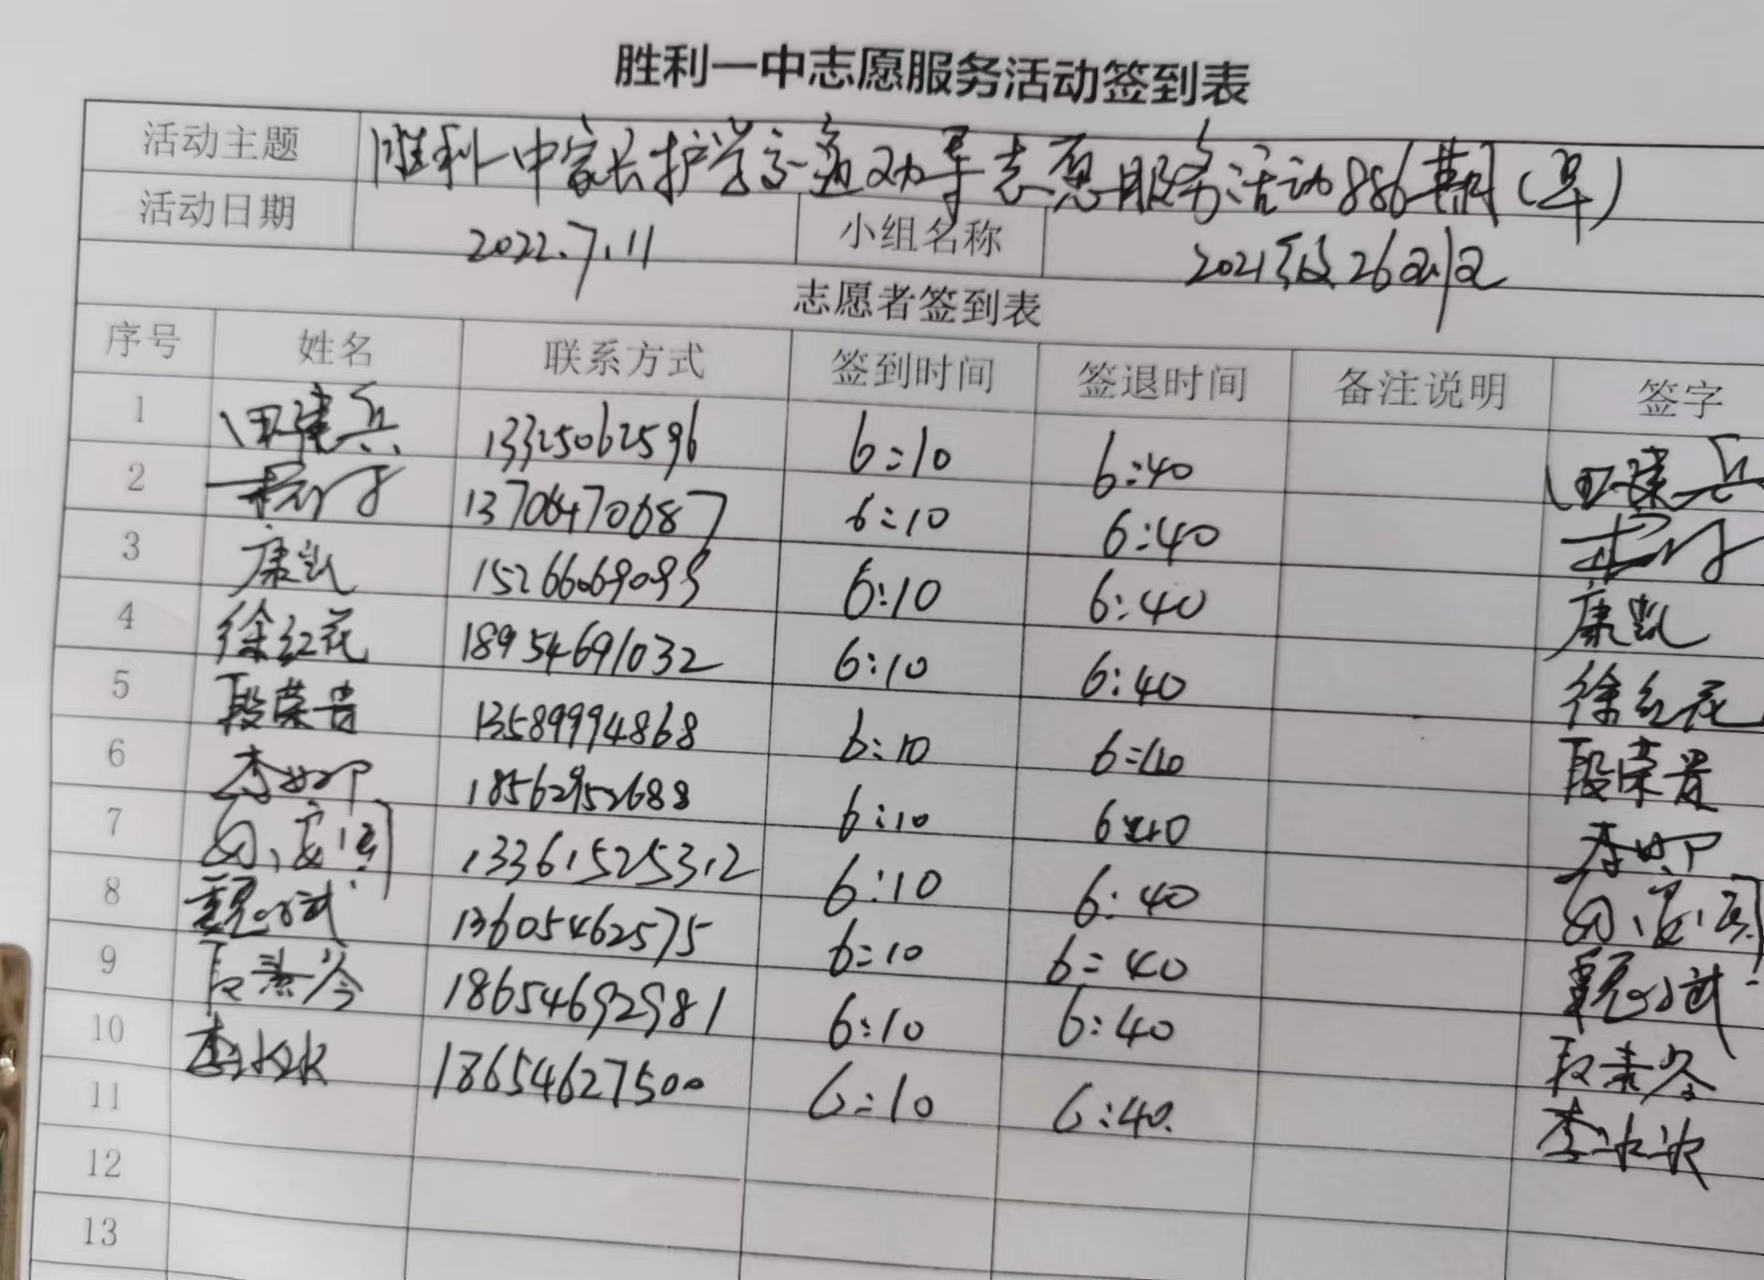 胜利一中志愿服务活动签到表
活动主题 胜利一中家长护学交通劝导志愿服务活动886期(早)
活动日期 2022.7.11 小组名称 2021级26
志愿者签到表
序号 姓名 联系方式 签到时间 签退时间 备注说明 签字
1 田建兵 13325062596 6:10 6:40 田建兵
2 13706470687 6:10 6:40
3 康凯 15266069093 6:10 6:40 康凯
4 徐红花 18954691032 6:10 6:40 徐红花
5 段荣贵 13589994868 6:10 6:40 段荣贵
6 李 18562952688 6:10 6:40 李
7 13361525312 6:10 6:40
8 魏 13605462575 6:10 6:40 魏
9 段素岑 18654692981 6:10 6:40 段素岑
10 李冰冰 18654627500 6:10 6:40 李冰冰
11
12
13